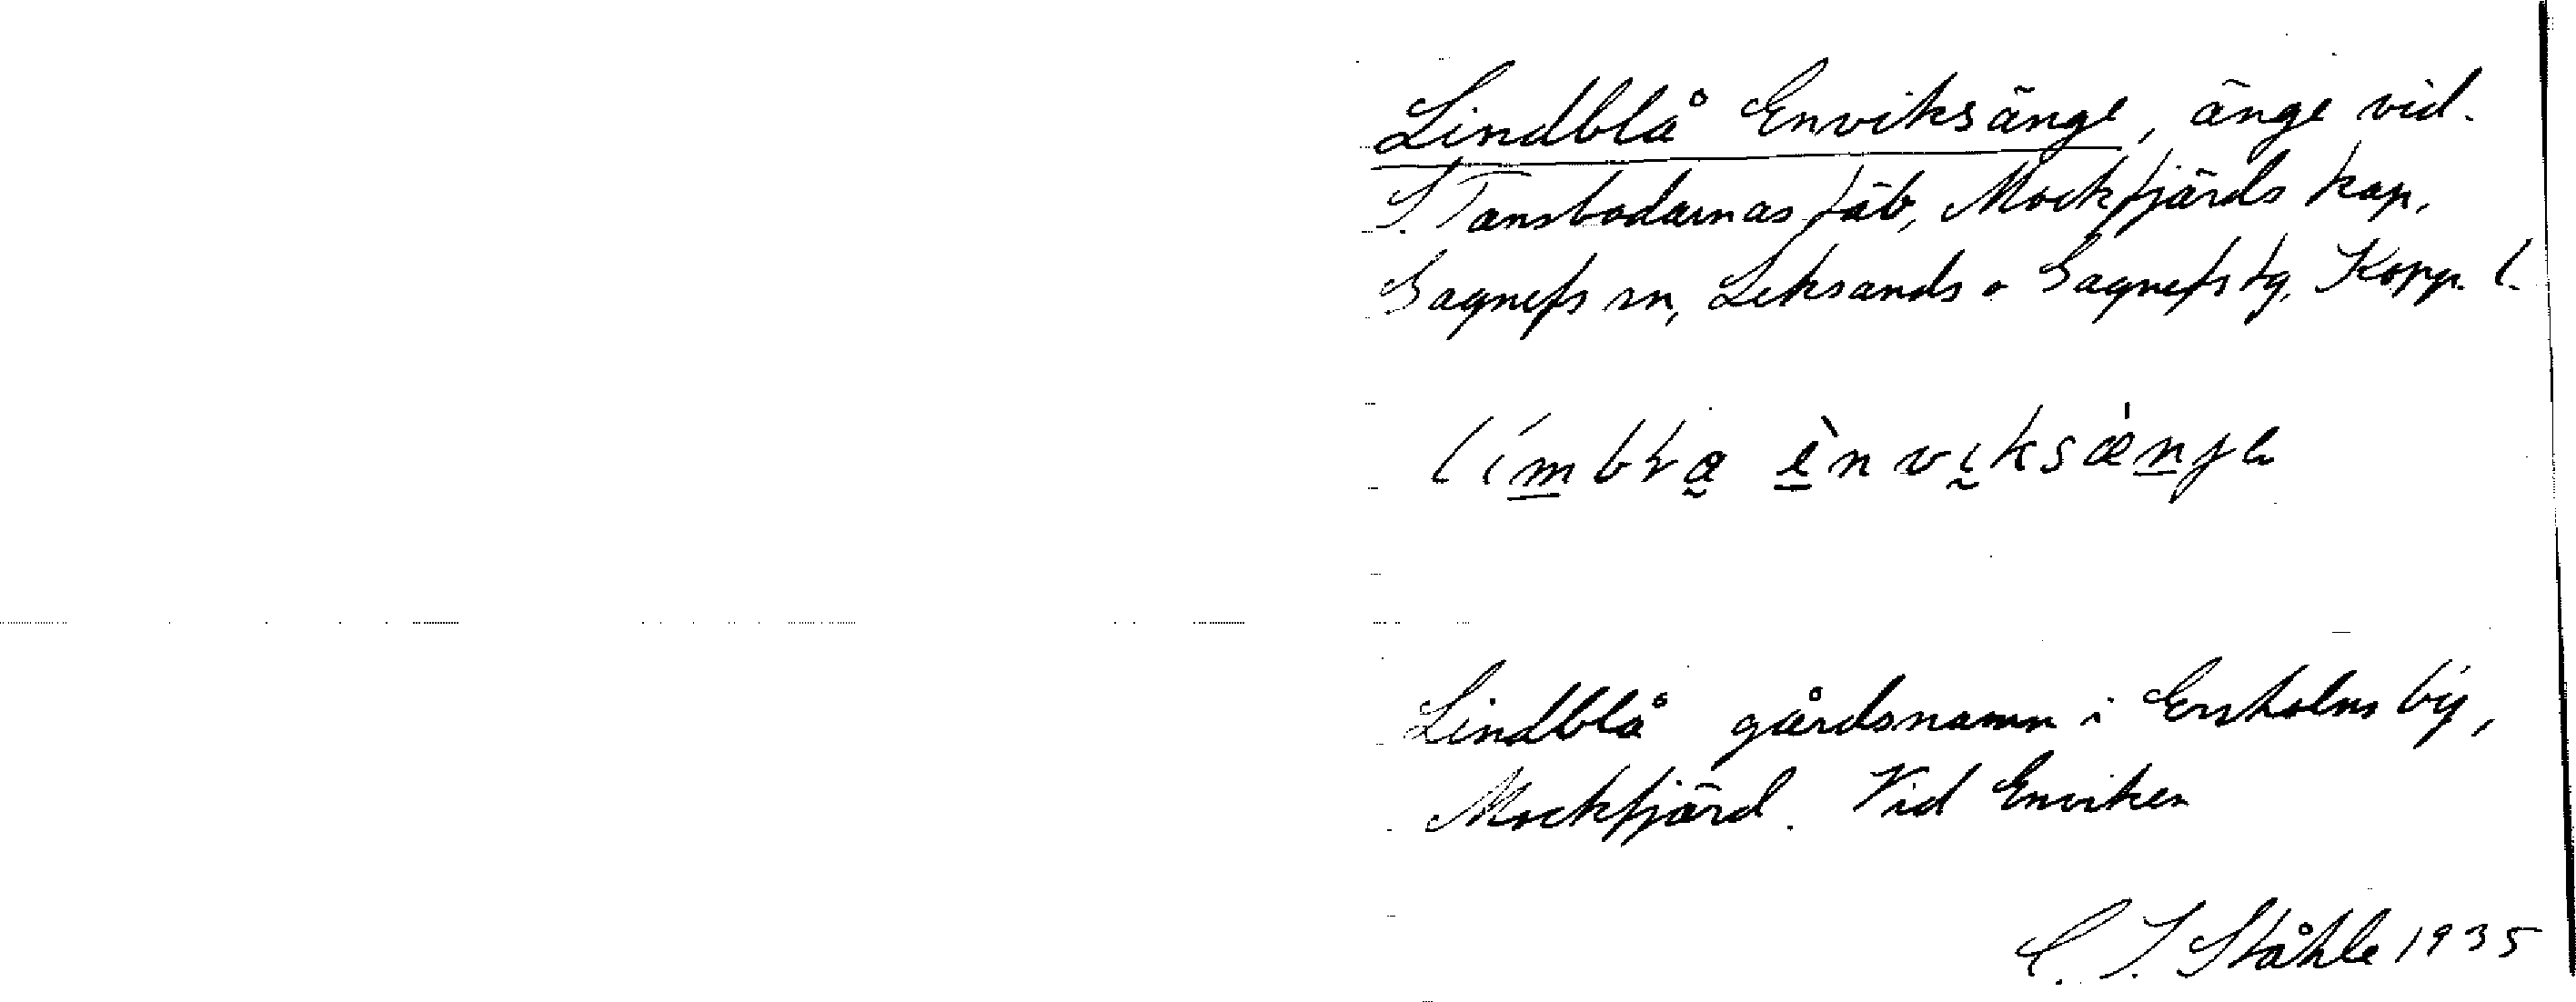 Lindblå Enviksänge, änge vid
S. Tansbodarnas fäb, Mockfjärds kap,
Gagnefs sn, Leksands o Gagnefs tg, Kopp. l.
Lindblå gårdsnamn i Ersholns by,
Mockfjärd. Vid Enviken
C. I. Ståhle 1935